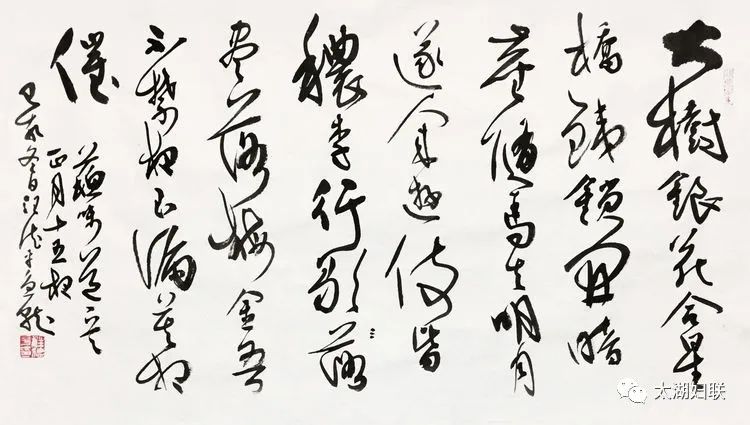 火樹銀花合星
橋鐵鎖開暗
塵隨馬去明月
逐人來遊伎皆
穠李行歌落
盡落梅金吾
不禁夜玉漏莫相
催
蘇味道
正月十五夜
己亥冬日汪
太湖妇联